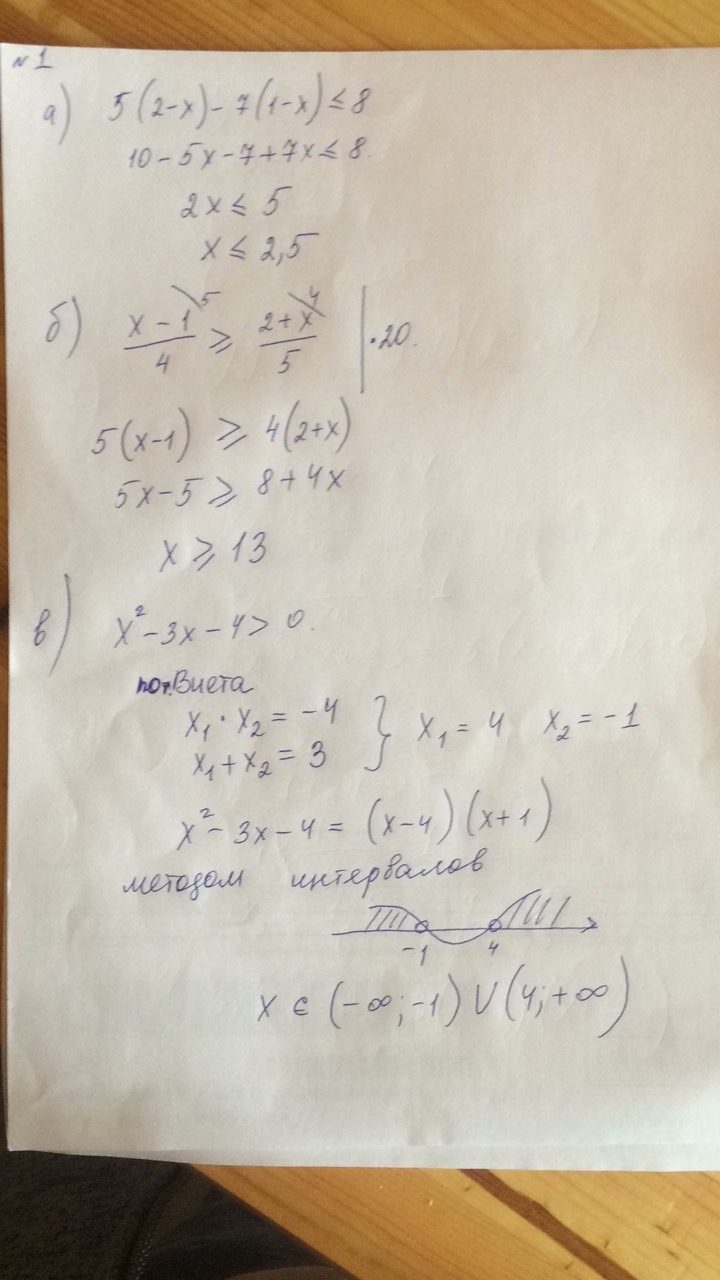 №1
а) 5(2-x)-7(1-x)≤8
10-5x-7+7x≤8.
2x≤5
x≤2,5
б) (x-1)/4 ⩾ (2+x)/5 | ·20.
5 4
5(x-1) ⩾ 4(2+x)
5x-5 ⩾ 8+4x
x ⩾ 13
в) x²-3x-4>0.
по т. Виета
x₁·x₂=-4
x₁+x₂=3 } x₁=4 x₂=-1
x²-3x-4=(x-4)(x+1)
методом интервалов
-1 4
x ∈ (-∞;-1)∪(4;+∞)